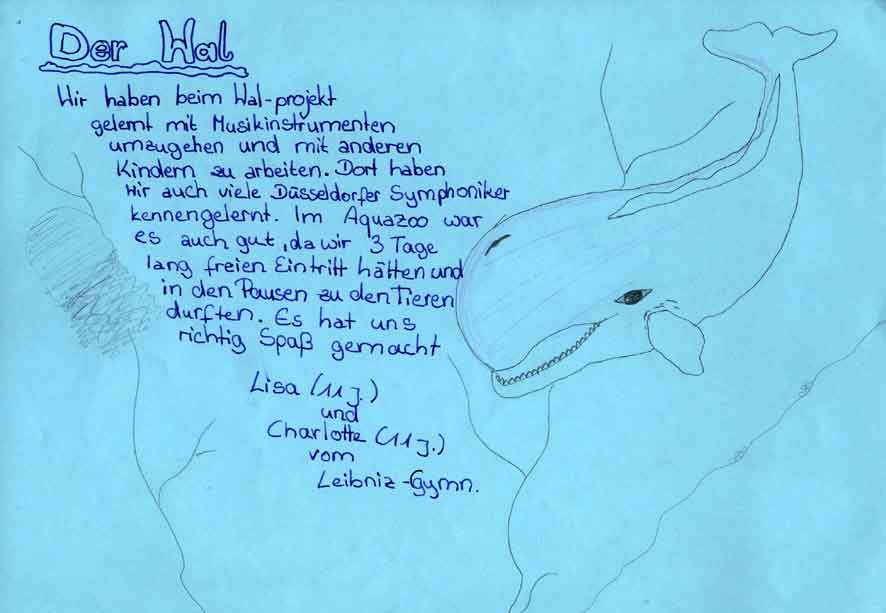 Der Wal
Wir haben beim Wal-projekt
gelernt mit Musikinstrumenten
umzugehen und mit anderen
Kindern zu arbeiten. Dort haben
wir auch viele Düsseldorfer Symphoniker
kennengelernt. Im Aquazoo war
es auch gut, da wir 3 Tage
lang freien Eintritt hätten und
in den Pausen zu den Tieren
durften. Es hat uns
richtig Spaß gemacht
Lisa (11 J.)
und
Charlotte (11 J.)
vom
Leibniz-Gymn.